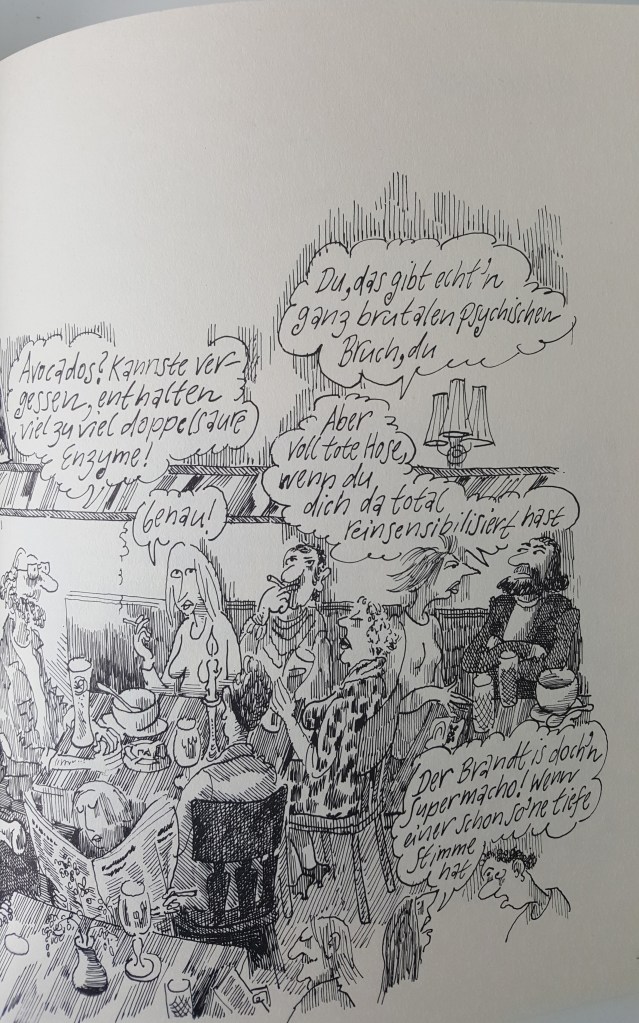 Du, das gibt echt'n
ganz brutalen psychischen
Bruch, du
Avocados? Kannste ver-
gessen, enthalten
viel zu viel doppelsaure
Enzyme!
Aber
voll tote Hose,
wenn du
dich da total
reinsensibilisiert hast
Genau!
Der Brandt is doch'n
Supermacho! Wenn
einer schon so'ne tiefe
Stimme
hat